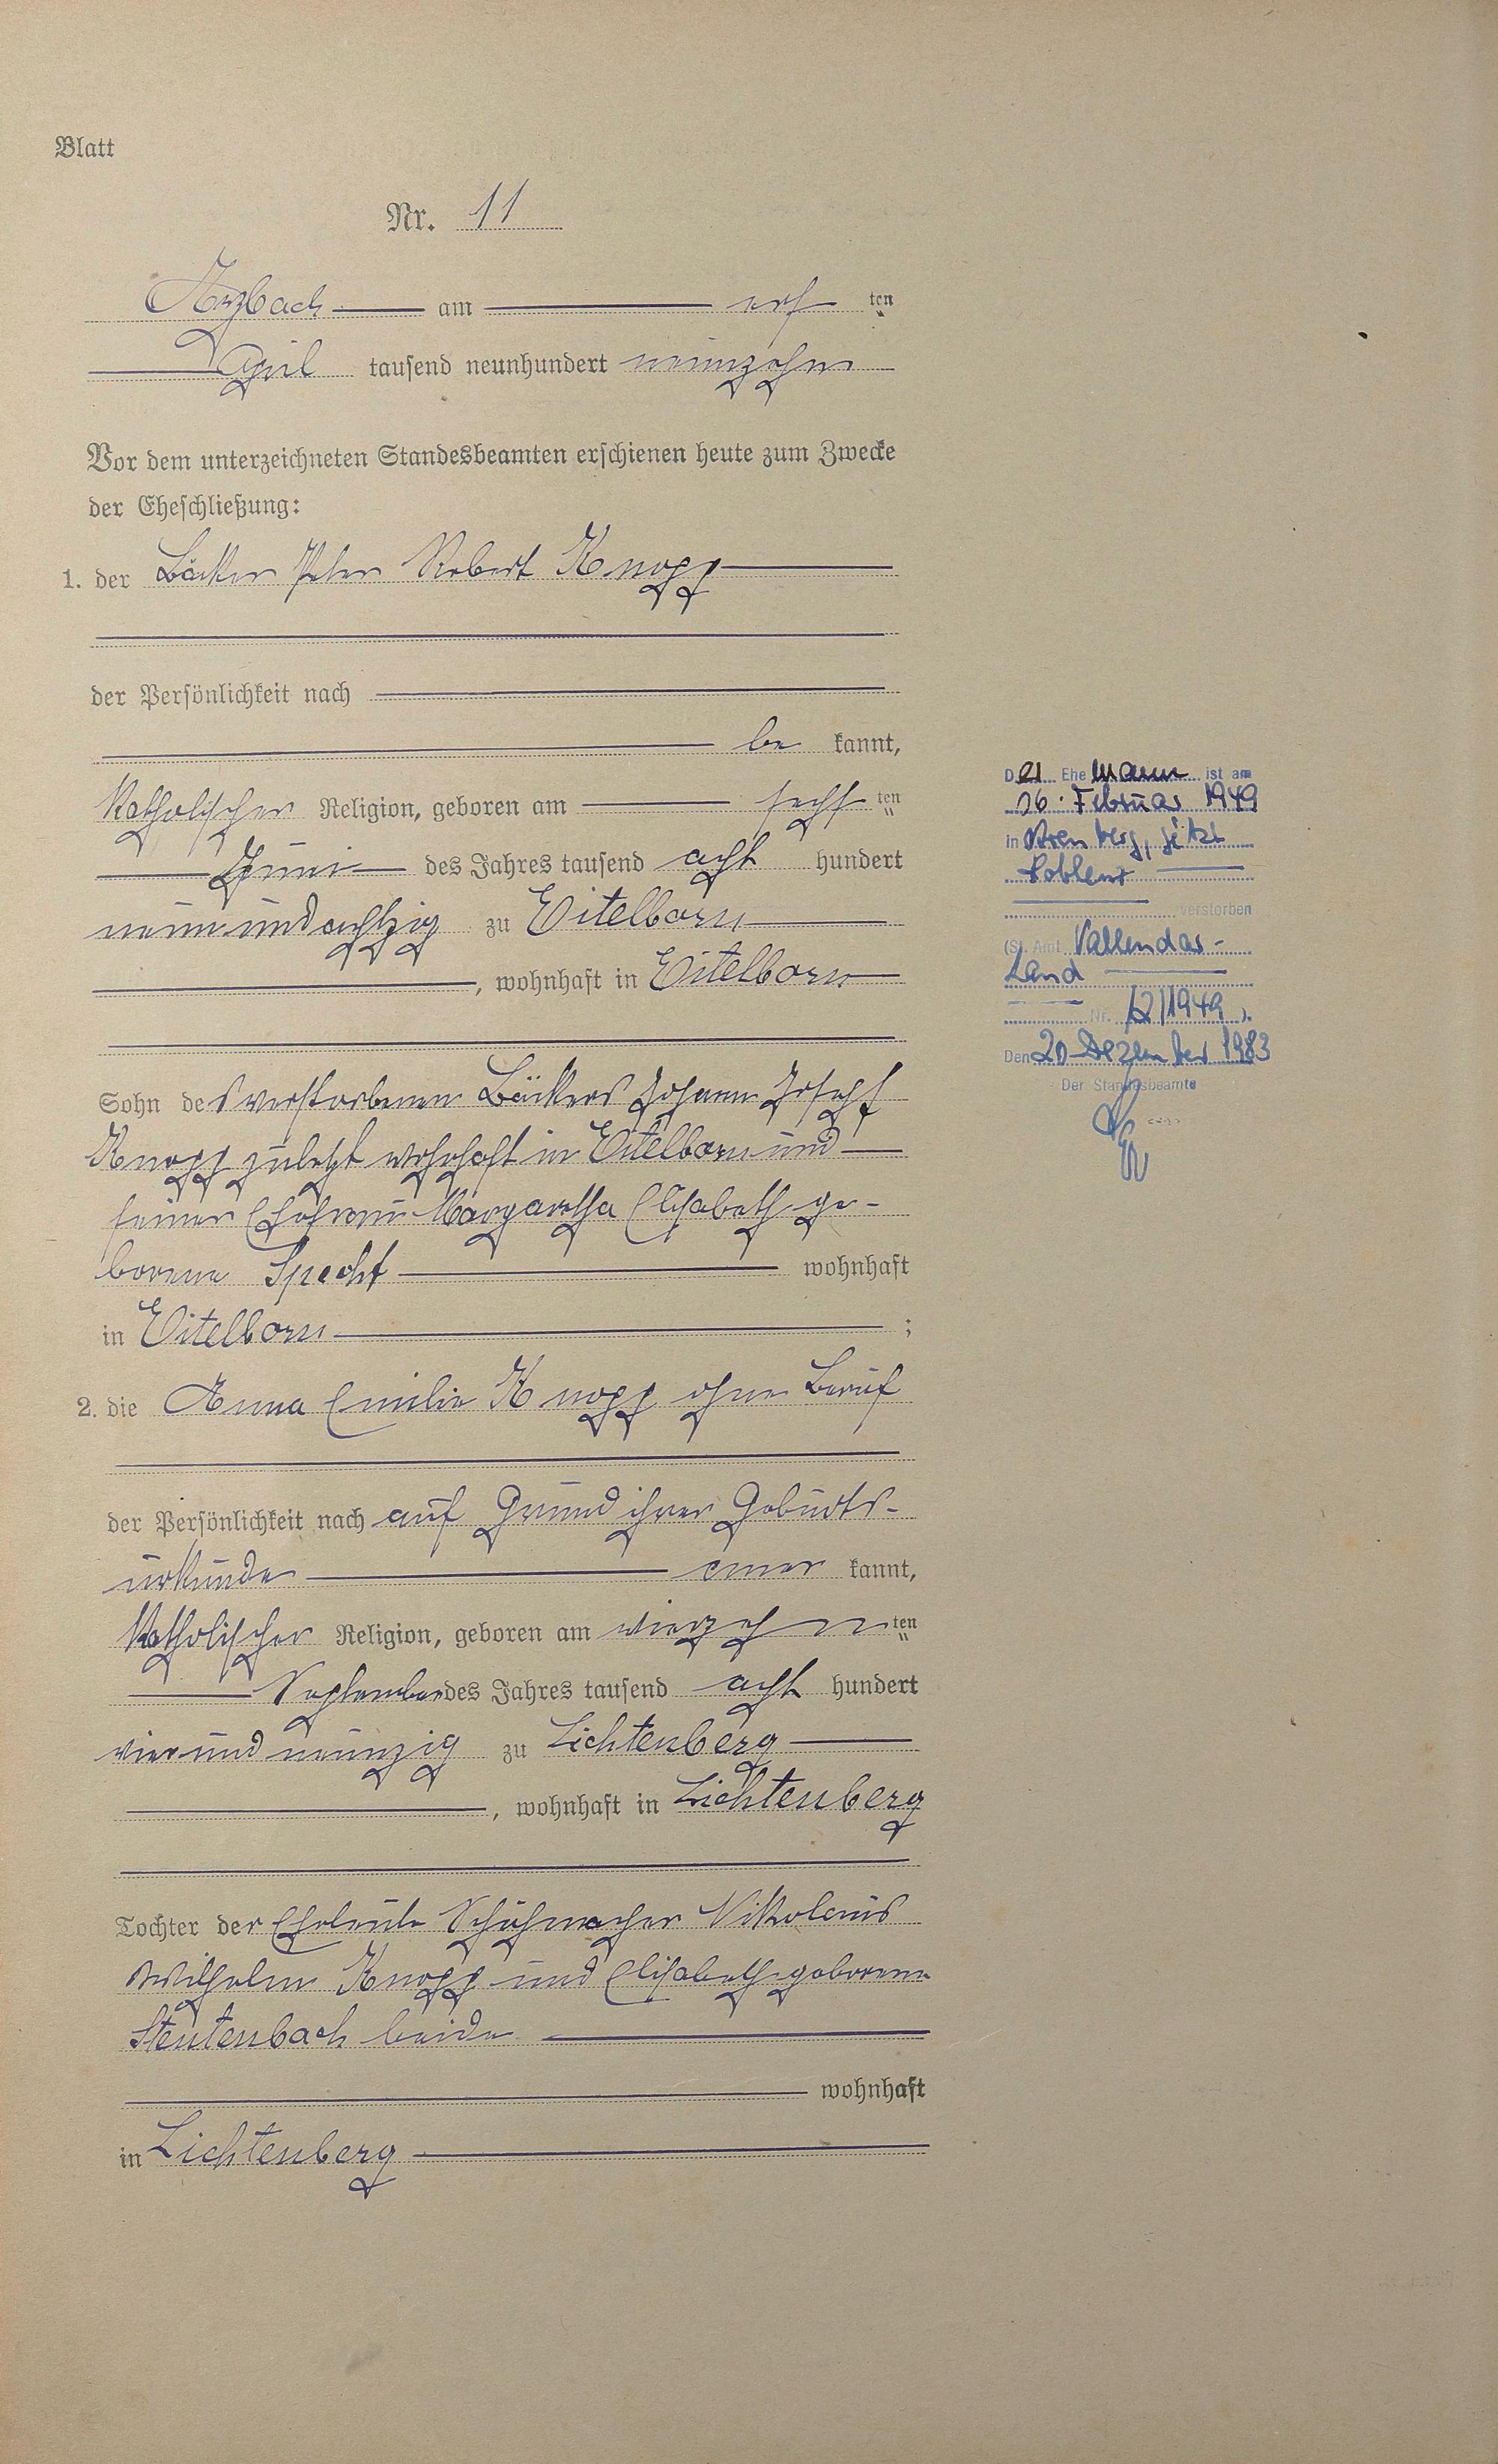 Blatt
Nr. 11
Arzbach am ten
April tausend neunhundert neunzehn
Vor dem unterzeichneten Standesbeamten erschienen heute zum Zwecke
der Eheschließung:
1. der Bäcker Peter Robert Knopp
der Persönlichkeit nach
be kannt,
Katholischer Religion, geboren am sechs ten
Juni des Jahres tausend acht hundert
neunundachtzig zu Eitelborn
, wohnhaft in Eitelborn
Sohn des verstorbenen Bäckers Johann Joseph
Knopp zuletzt wohnhaft in Eitelborn und
seiner Ehefrau Margaretha Elisabeth ge-
borene Specht wohnhaft
in Eitelborn ;
2. die Anna Emilie Knopp ohne Beruf
der Persönlichkeit nach auf Grund ihrer Geburts-
urkunde aner kannt,
Katholischer Religion, geboren am vierzehn ten
September des Jahres tausend acht hundert
vierundneunzig zu Lichtenberg
, wohnhaft in Lichtenberg
Tochter der Eheleute Schuhmacher Nikolaus
Wilhelm Knopp und Elisabeth geborene
Steutenbach beide
wohnhaft
in Lichtenberg
Der Ehemann ist am
16. Februar 1949
in Arenberg, jetzt
Koblenz
verstorben
(St. Amt Vallendar-
Land
Nr. 12/1949).
Den 20. Dezember 1983
Der Standesbeamte